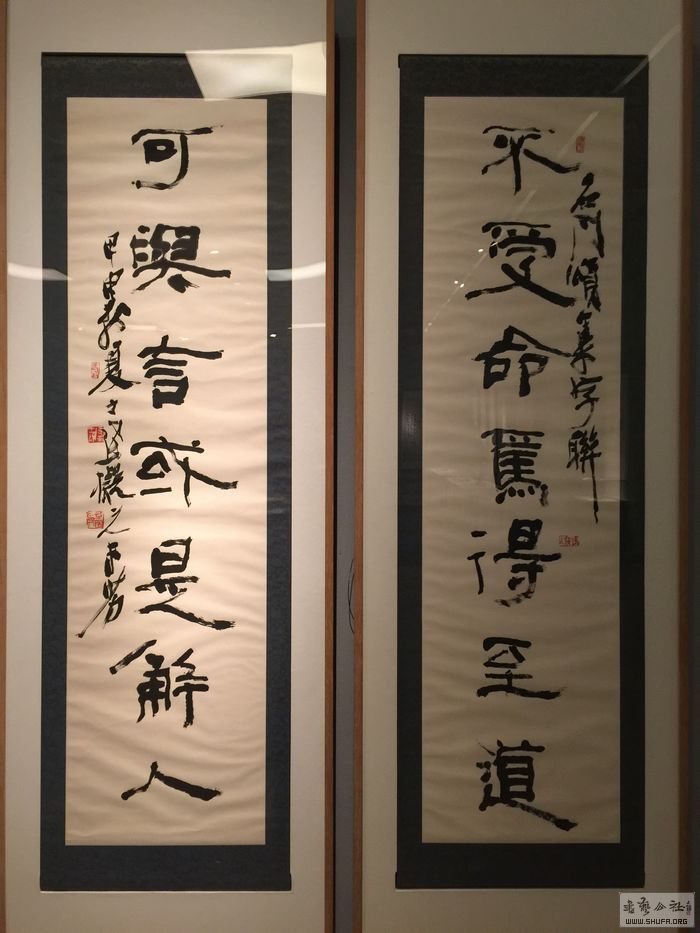 不受命篤得至道
石門頌集字聯
可與言或是解人
甲申新夏
書藝公社
WWW.SHUFA.ORG